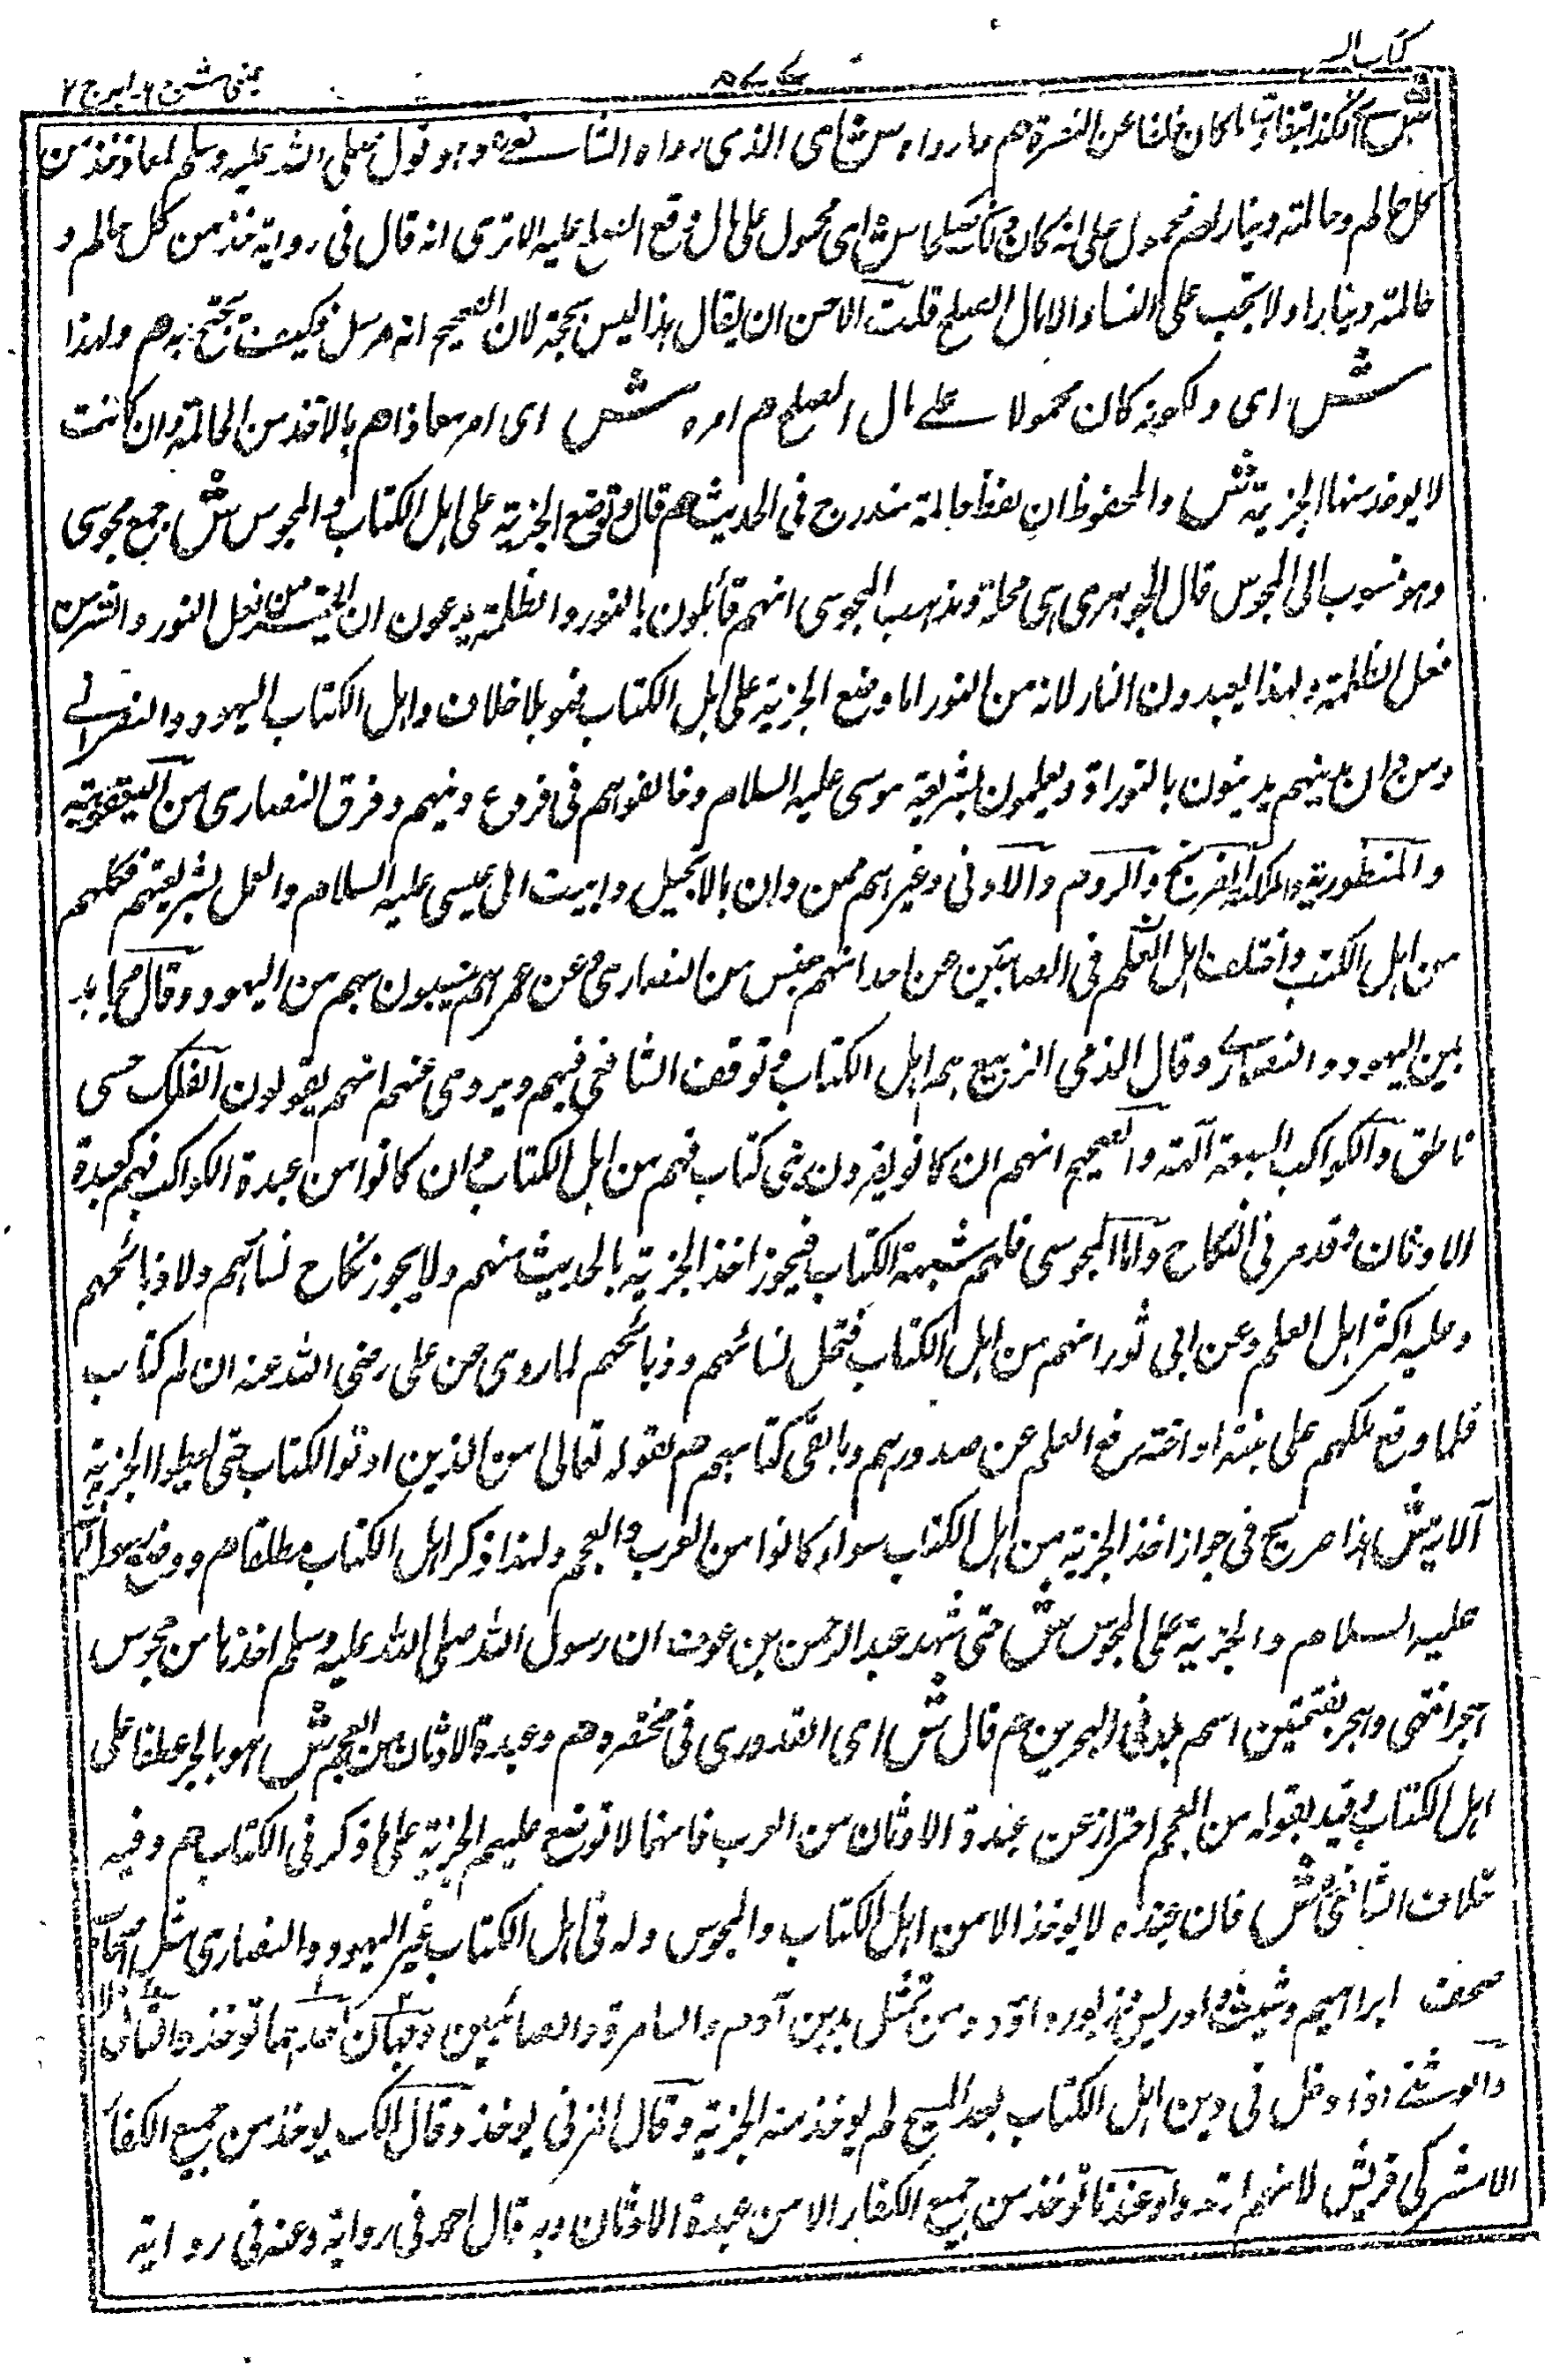 كتاب السـ
عینی شرح ہدایہ ج ۲
ش كذلك تتفاوت لما كان خلفا عن النصرة م وما رواه ش اى الذى رواه الشافعي وهو قول صلى الله عليه وسلم لمعاذ خذ من
كل حالم وحالمة دينارا م فمحمول على انه كان ذلك صلحا ش اى محمول على مال وقع الصلح عليه الا ترى انه قال فى رواية خذ من كل حالم و
حالمة دينارا ولا تجب على النساء الا مال الصلح قلت الاحسن ان يقال هذا ليس بحجة لان الصحيح انه مرسل فكيف يحتج به م ولهذا
ش اى ولكونه كان محمولا على مال الصلح م امره ش اى امر معاذا م بالاخذ من الحالمة وان كانت
لا يوخذ منها الجزية ش والمحفوظ ان لفظ حالمة مندرج فى الحديث م قال وتوضع الجزية على اهل الكتاب والمجوس ش جمع مجوسى
وهو منسوب الى المجوس قال الجوهرى هى محلة ومذهب المجوسى انهم قائلون بالنور والظلمة يدعون ان الخير من فعل النور والشر من
فعل الظلمة ولهذا يعبدون النار لانه من النور اما وضع الجزية على اهل الكتاب فهو بلا خلاف واهل الكتاب اليهود والنصرانى
ومن دان بدينهم يدينون بالتوراة ويعلمون بشريعة موسى عليه السلام وخالفوهم فى فروع دينهم وفرق النصارى من اليعقوبية
والنسطورية والملكية الفرنج والروم والاومى وغيرهم ممن دان بالانجيل وابيت الى عيسى عليه السلام والعمل بشريعتهم فكلهم
من اهل الكتب واختلف اهل العلم فى الصابئين عن احمد انهم جنس من النصارى وعن عمر انهم ينسبون هم من اليهود وقال مجاهد
بين اليهود والنصارى وقال الذمى الربيع هم اهل الكتاب وتوقف الشافعى فيهم ويروى عنهم انهم يقولون الفلك حى
ناطق والكواكب السبعة آلهة والصحيح انهم ان كانو يقرون بنبى كتاب فهم من اهل الكتاب وان كانوا من عبدة الكواكب فهم كعبدة
الاوثان وقد مر فى النكاح واما المجوسى فلهم شبهة الكتاب فيجوز اخذ الجزية بالحديث منهم ولا يجوز نكاح نسائهم ولا ذبائحهم
وعليه اكثر اهل العلم وعن ابى ثور انهم من اهل الكتاب فتحل نسائهم وذبائحهم لما روى عن على رضى الله عنه ان لهم كتاب
فلما وقع ملكهم على بنته او اخته رفع العلم عن صدورهم وما بقى كتابهم م لقوله تعالى من الذين اوتوا الكتاب حتى يعطوا الجزية
الآية ش هذا صريح فى جواز اخذ الجزية من اهل الكتاب سواء كانوا من العرب والعجم ولهذا ذكر اهل الكتاب مطلقا م ووضع رسول الله
عليه السلام والجزية على المجوس ش حتى شهد عبد الرحمن بن عوف ان رسول الله صلى الله عليه وسلم اخذها من مجوس
هجر انتهى وهجر بفتحتين اسم بلد فى البحرين م قال ش اى القدورى فى مختصره م وعبدة الاوثان من العجم ش هو بالجر عطفا على
اهل الكتاب وقيد بقوله من العجم احترازا عن عبدة الاوثان من العرب فانها لا توضع عليهم الجزية على ما ذكر فى الكتاب م وفيه
خلاف الشافعى ش فان عنده لا يوخذ الا من اهل الكتاب والمجوس وله فى اهل الكتاب غير اليهود والنصارى مثل اصحاب
صحف ابراهيم وشيث وادريس وزبور داؤد ومن تمثل بدين آدم والسامرة والصابئين وجهان احدهما توخذ والثانى لا
والوثنى اذا دخل فى دين اهل الكتاب بعد المسيح لم يوخذ منه الجزية وقال المزنى يوخذ وقال مالك يوخذ من جميع الكفار
الا مشركى قريش لانهم ارتدوا وعندنا توخذ من جميع الكفار الا من عبدة الاوثان وبه قال احمد فى رواية وعنه فى رواية